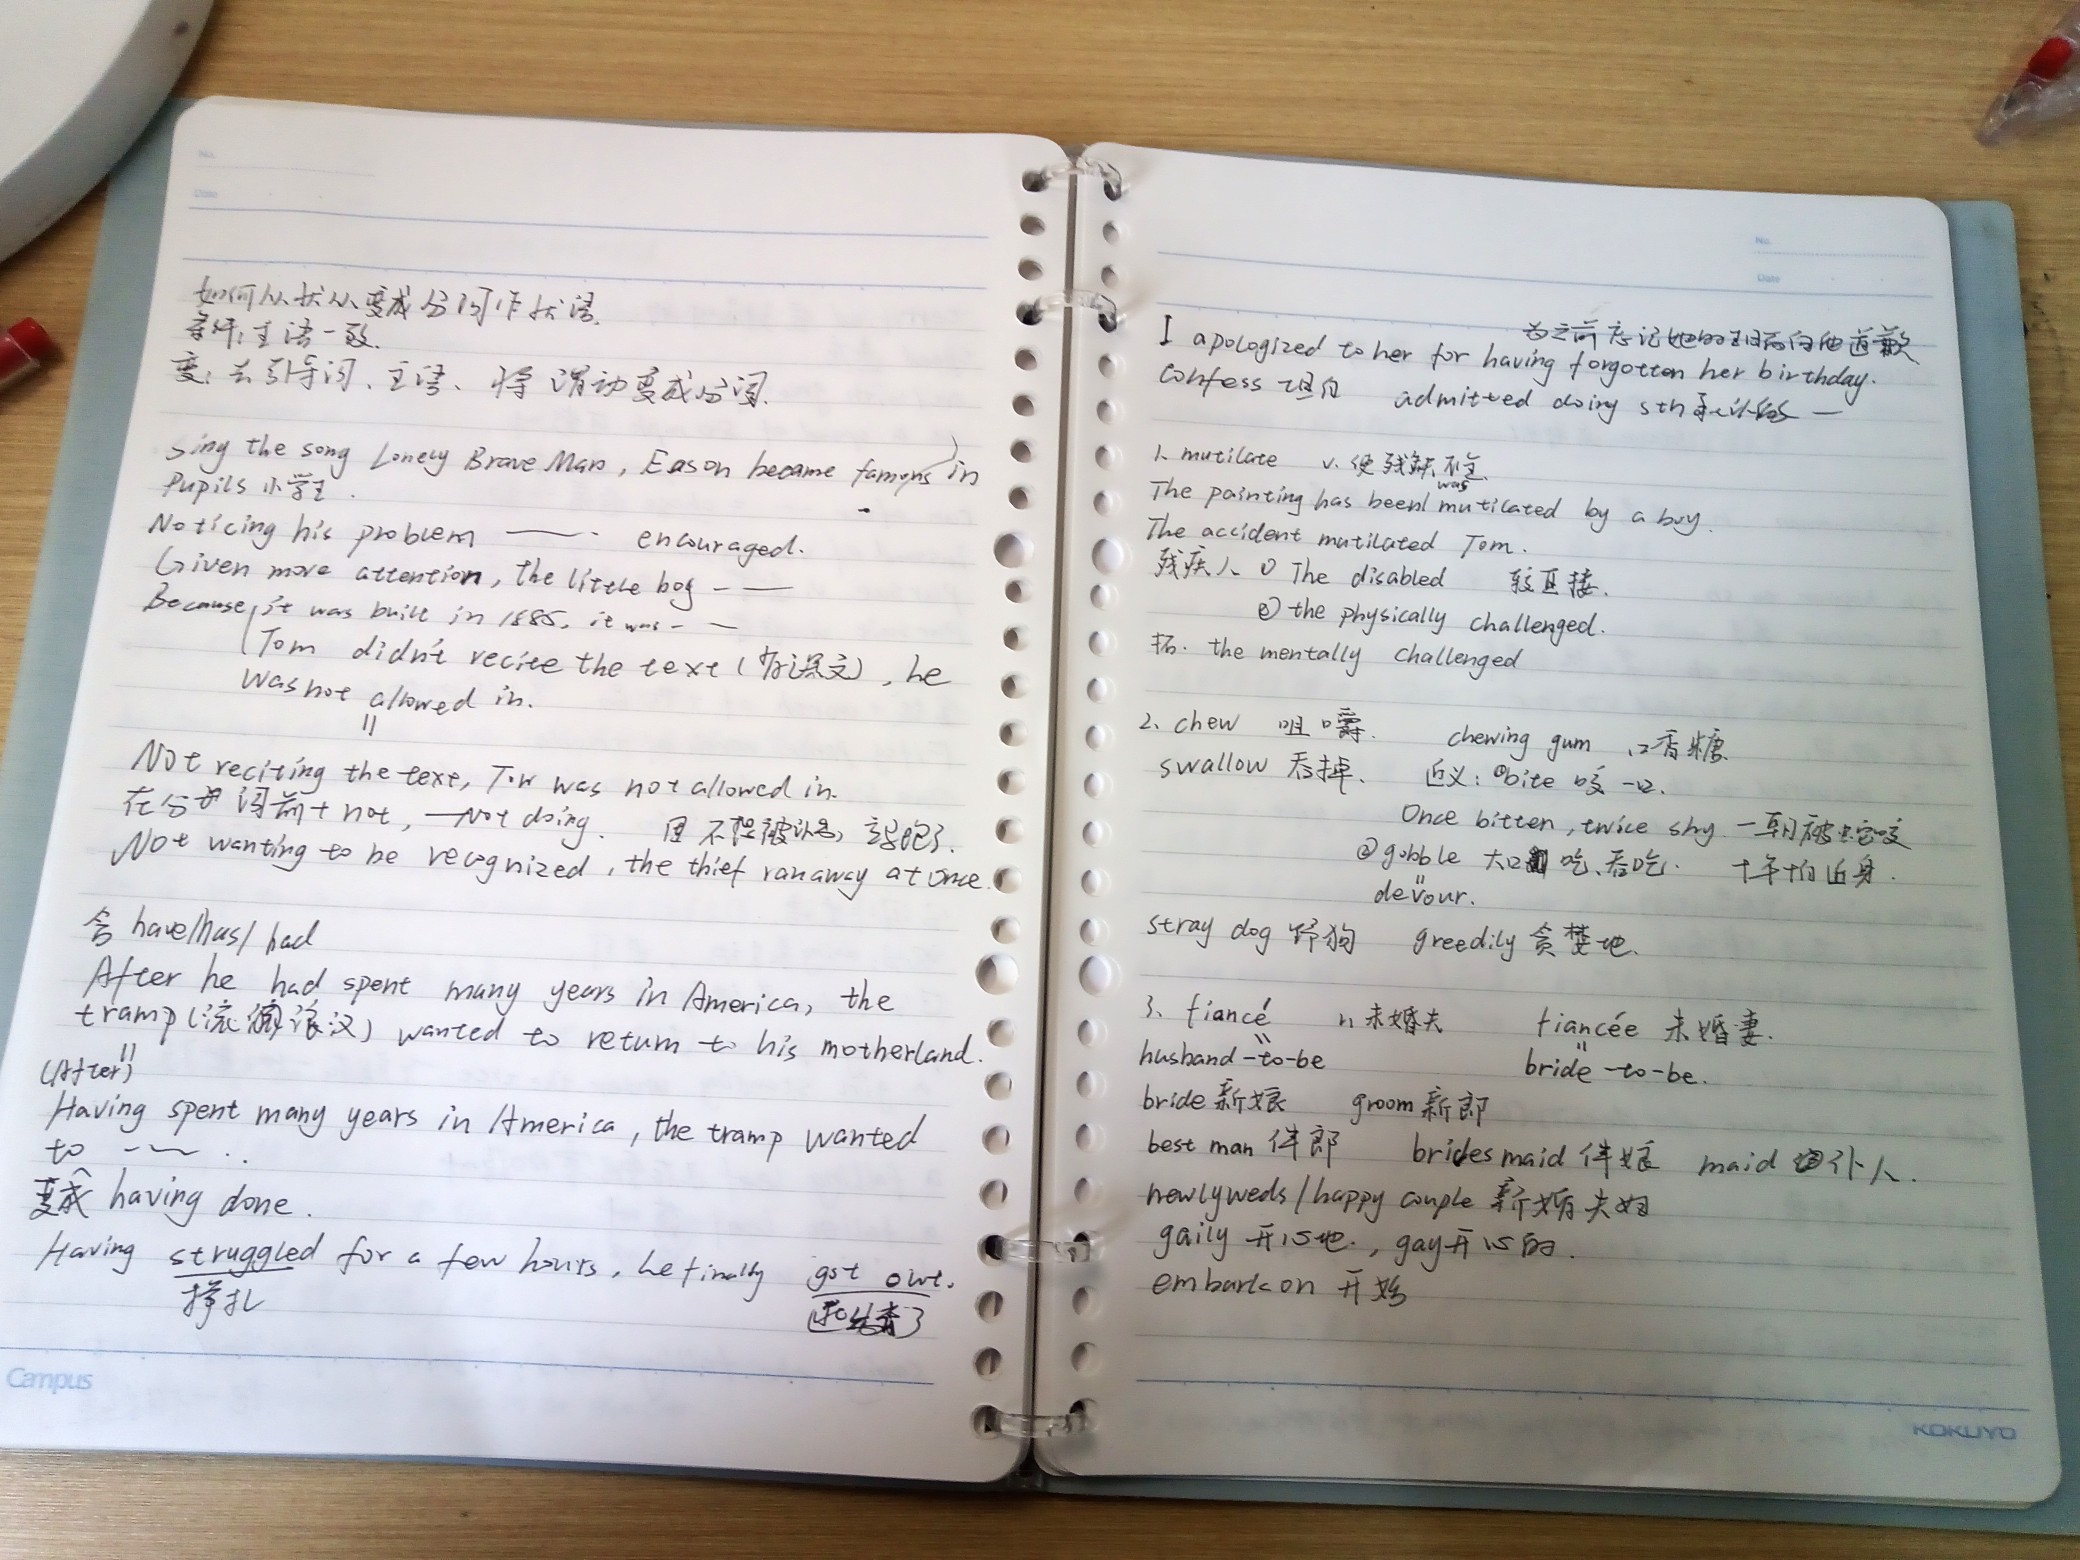 No.
Date
如何从状从变成分词作状语.
条件: 主语一致.
变: 去引导词、主语、将谓动变成分词.
Sing the song Lonely Brave Man, Eason became famous in
Pupils 小学生.
Noticing his problem —— . encouraged.
Given more attention, the little boy - —
Because it was built in 1885, it was - —
Tom didn't recite the text (背课文), he
was not allowed in.
=
Not reciting the text, Tom was not allowed in.
在分词前+not, —Not doing. 因不想被认出,
Not wanting to be recognized, the thief ran away at once.
含 have/has/had
After he had spent many years in America, the
tramp (流浪汉) wanted to return to his motherland.
=
(After)
Having spent many years in America, the tramp wanted
to -~~ ..
变成 having done.
Having struggled for a few hours, he finally got out.
挣扎
Campus
No.
Date
I apologized to her for having forgotten her birthday.
confess 坦白 admitted doing sth —
1. mutilate v. 使残缺不全.
was
The painting has been mutilated by a boy.
The accident mutilated Tom.
残疾人 ① The disabled 较直接.
② the physically challenged.
拓. the mentally challenged
2. chew 咀嚼. chewing gum 口香糖.
swallow 吞掉. 近义: ①bite 咬一口.
Once bitten, twice shy 一朝被蛇咬
②gobble 大口吃、吞吃. 十年怕近身.
=
devour.
stray dog 野狗 greedily 贪婪地.
3. fiancé n 未婚夫 fiancée 未婚妻.
= =
husband-to-be bride-to-be.
bride 新娘 groom 新郎
best man 伴郎 bridesmaid 伴娘 maid 仆人.
newlyweds/happy couple 新婚夫妇
gaily 开心地., gay开心的.
embark on 开始
KOKUYO